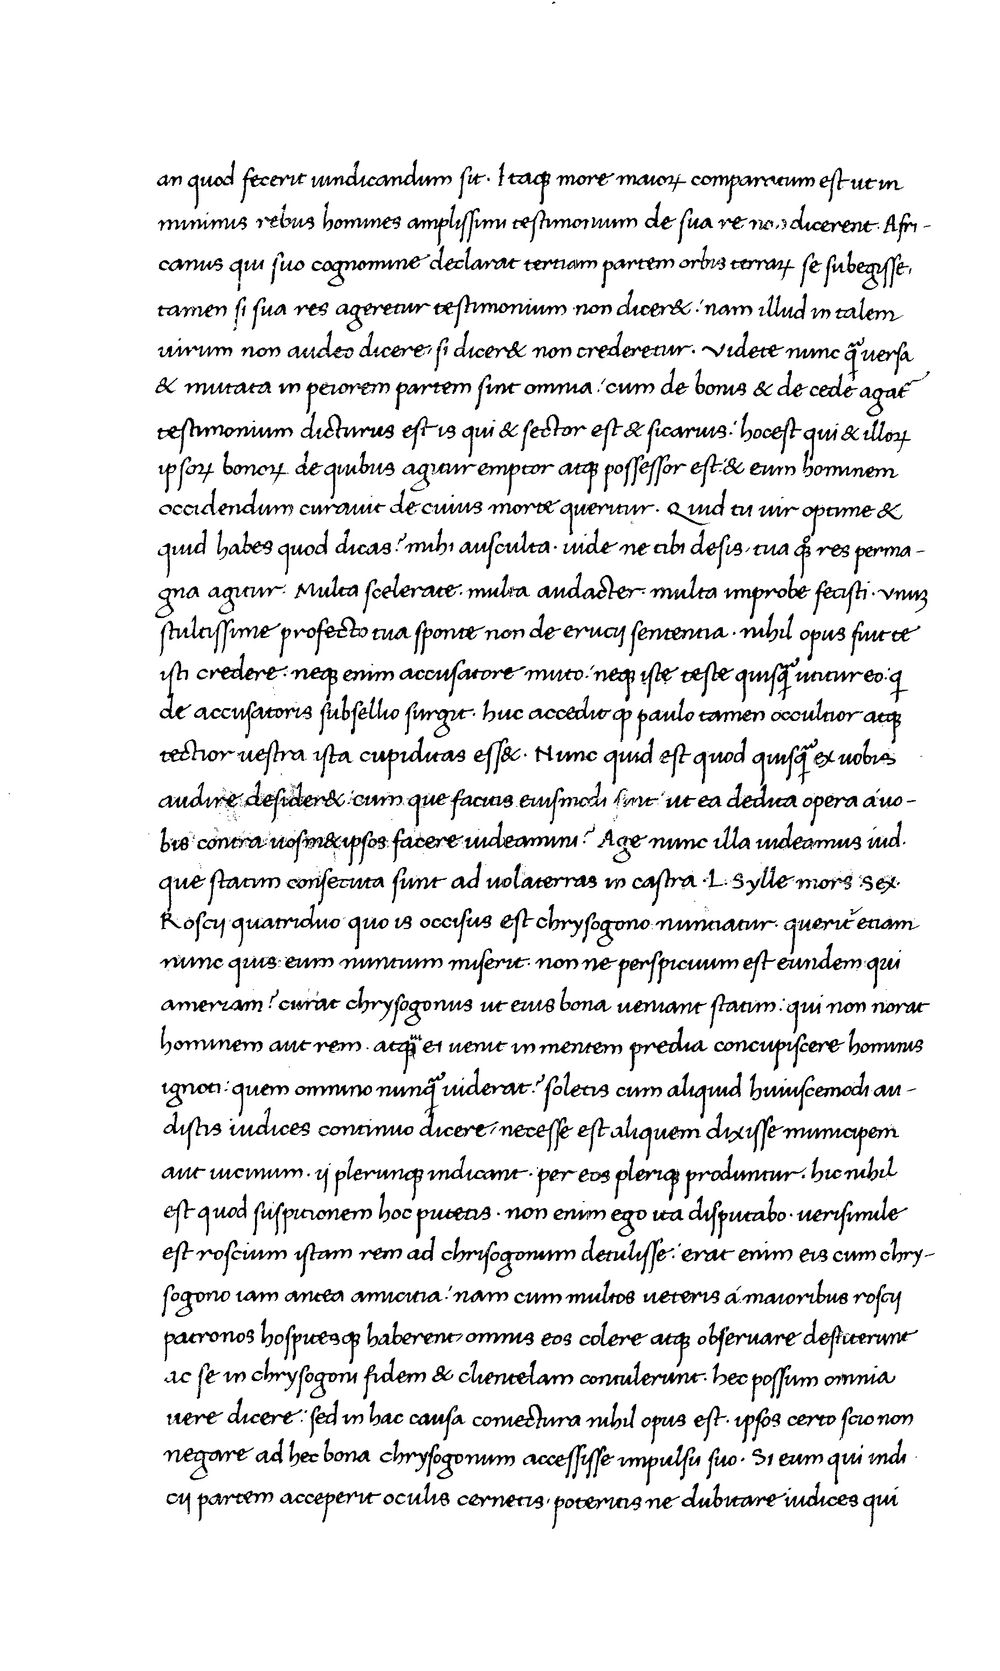 an quod fecerit uindicandum sit. Itaqꝫ more maioꝝ comparatum est ut in
minimis rebus homines amplissimi testimonium de sua re non dicerent. Afri-
canus qui suo cognomine declarat tertiam partem orbis terraꝝ se subegisse,
tamen si sua res ageretur testimonium non dicer&: nam illud in talem
uirum non audeo dicere, si dicer& non crederetur. Videte nunc q̃ uersa
& mutata in peiorem partem sint omnia: cum de bonis & de cede agat᷑
testimonium dicturus est is qui & sector est & sicarius: hoc est qui & illoꝝ
ipsoꝝ bonoꝝ de quibus agitur emptor atqꝫ possessor est: & eum hominem
occidendum curauit de cuius morte queritur. Quid tu uir optime &
quid habes quod dicas? mihi ausculta. uide ne tibi desis, tua qꝫ res perma-
gna agitur. Multa scelerate. multa audacter. multa improbe fecisti. Vnuꝫ
stultissime profecto tua sponte non de erucij sententia. nihil opus fuit te
isti credere. neqꝫ enim accusatore muto: neqꝫ iste teste quisq̃ utitur eo: q
de accusatoris subsellio surgit. huc accedit ꝙ paulo tamen occultior atqꝫ
tectior uestra ista cupiditas ess&. Nunc quid est quod quisq̃ ex uobis
audire desider&: cum que facitis eiusmodi sint: ut ea dedita opera a uo-
bis contra uosm& ipsos facere uideamini? Age nunc illa uideamus iud.
que statim consecuta sunt ad uolaterras in castra .L. Sylle mors Sex.
Roscij quatriduo quo is occisus est chrysogono nuntiatur. querit᷑ etiam
nunc quis eum nuntium miserit. non ne perspicuum est eundem qui
ameriam? curat chrysogonus ut eius bona ueniant statim: qui non norat
hominem aut rem. atqꝫ ei uenit in mentem predia concupiscere hominis
ignoti: quem omnino nunq̃ uiderat? soletis cum aliquid huiuscemodi au-
distis iudices continuo dicere, necesse est aliquem dixisse municipem
aut uicinum. ij plerunqꝫ indicant. per eos pleriqꝫ produntur. hic nihil
est quod suspitionem hoc putetis. non enim ego ita disputabo. uerisimile
est roscium istam rem ad chrisogonum detulisse: erat enim eis cum chry-
sogono iam antea amicitia: nam cum multos ueteris á maioribus roscij
patronos hospitesqꝫ haberent, omnis eos colere atqꝫ obseruare destiterunt
ac se in chrysogoni fidem & clientelam contulerunt. hec possum omnia
uere dicere: sed in hac causa coniectura nihil opus est. ipsos certo scio non
negare ad hec bona chrysogonum accessisse impulsu suo. Si eum qui indi
cij partem acceperit oculis cernetis. poteritis ne dubitare iudices qui